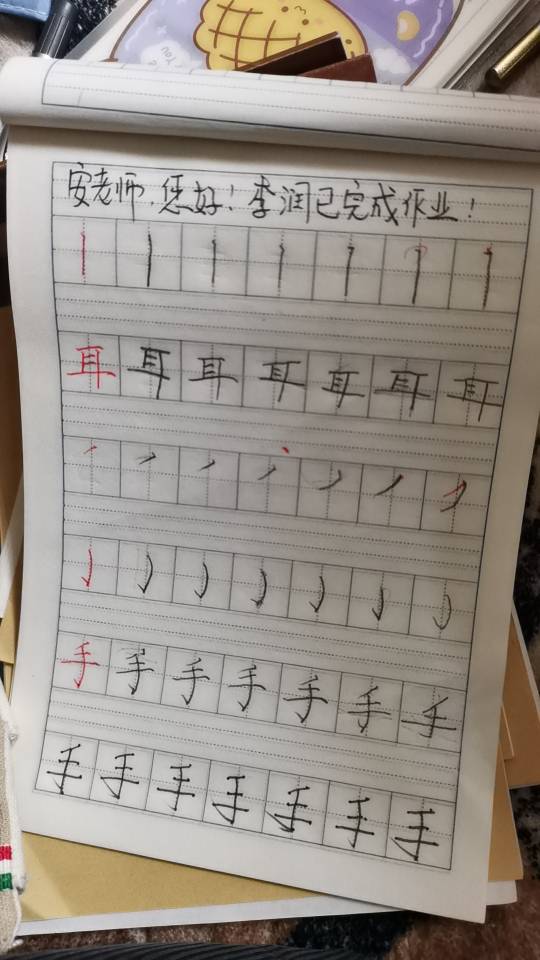 安老师，您好！李润已完成作业！
丨丨丨丨丨丨丨
耳耳耳耳耳耳耳
手手手手手手手
手手手手手手手